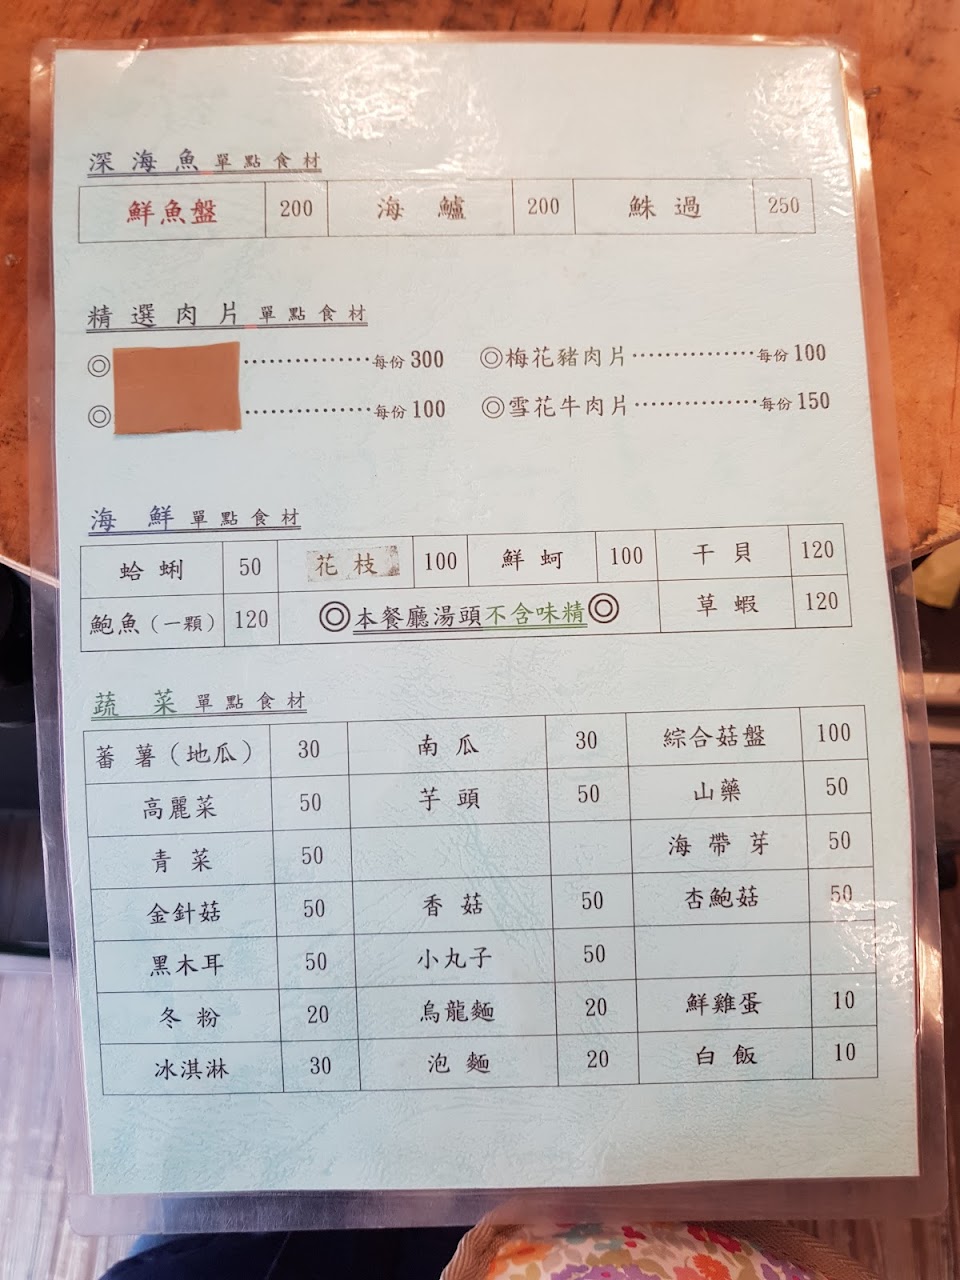 深海魚單點食材
鮮魚盤 200 海鱸 200 鮢過 250
精選肉片單點食材
◎ ⋯⋯⋯⋯⋯每份300 ◎梅花豬肉片⋯⋯⋯⋯⋯每份100
◎ ⋯⋯⋯⋯⋯每份100 ◎雪花牛肉片⋯⋯⋯⋯⋯每份150
海鮮單點食材
蛤蜊 50 花枝 100 鮮蚵 100 干貝 120
鮑魚(一顆) 120 ◎本餐廳湯頭不含味精◎ 草蝦 120
蔬菜單點食材
蕃薯(地瓜) 30 南瓜 30 綜合菇盤 100
高麗菜 50 芋頭 50 山藥 50
青菜 50 海帶芽 50
金針菇 50 香菇 50 杏鮑菇 50
黑木耳 50 小丸子 50
冬粉 20 烏龍麵 20 鮮雞蛋 10
冰淇淋 30 泡麵 20 白飯 10